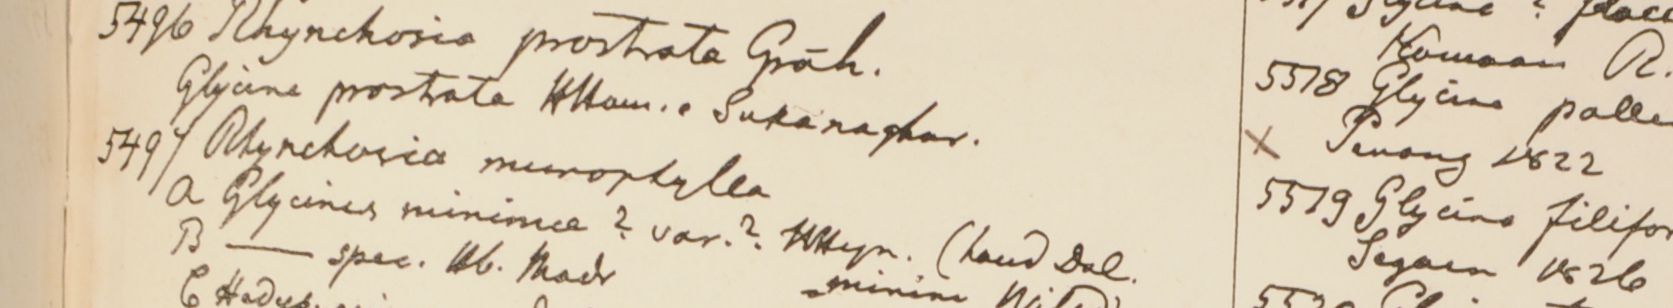 5496 Rhynchosia prostrata Grāh.
Glycine prostrata HHam. e Sukanaghar.
5497 Rhynchosia microphylla
a Glycines minimae ? var.? HHeyn. (haud Dol.
B —— spec. Hb. Madr
minima
Glycine ?
Kamaon R.
5518 Glycine
x Penang 1822
5519 Glycine filifor
Segaen 1826